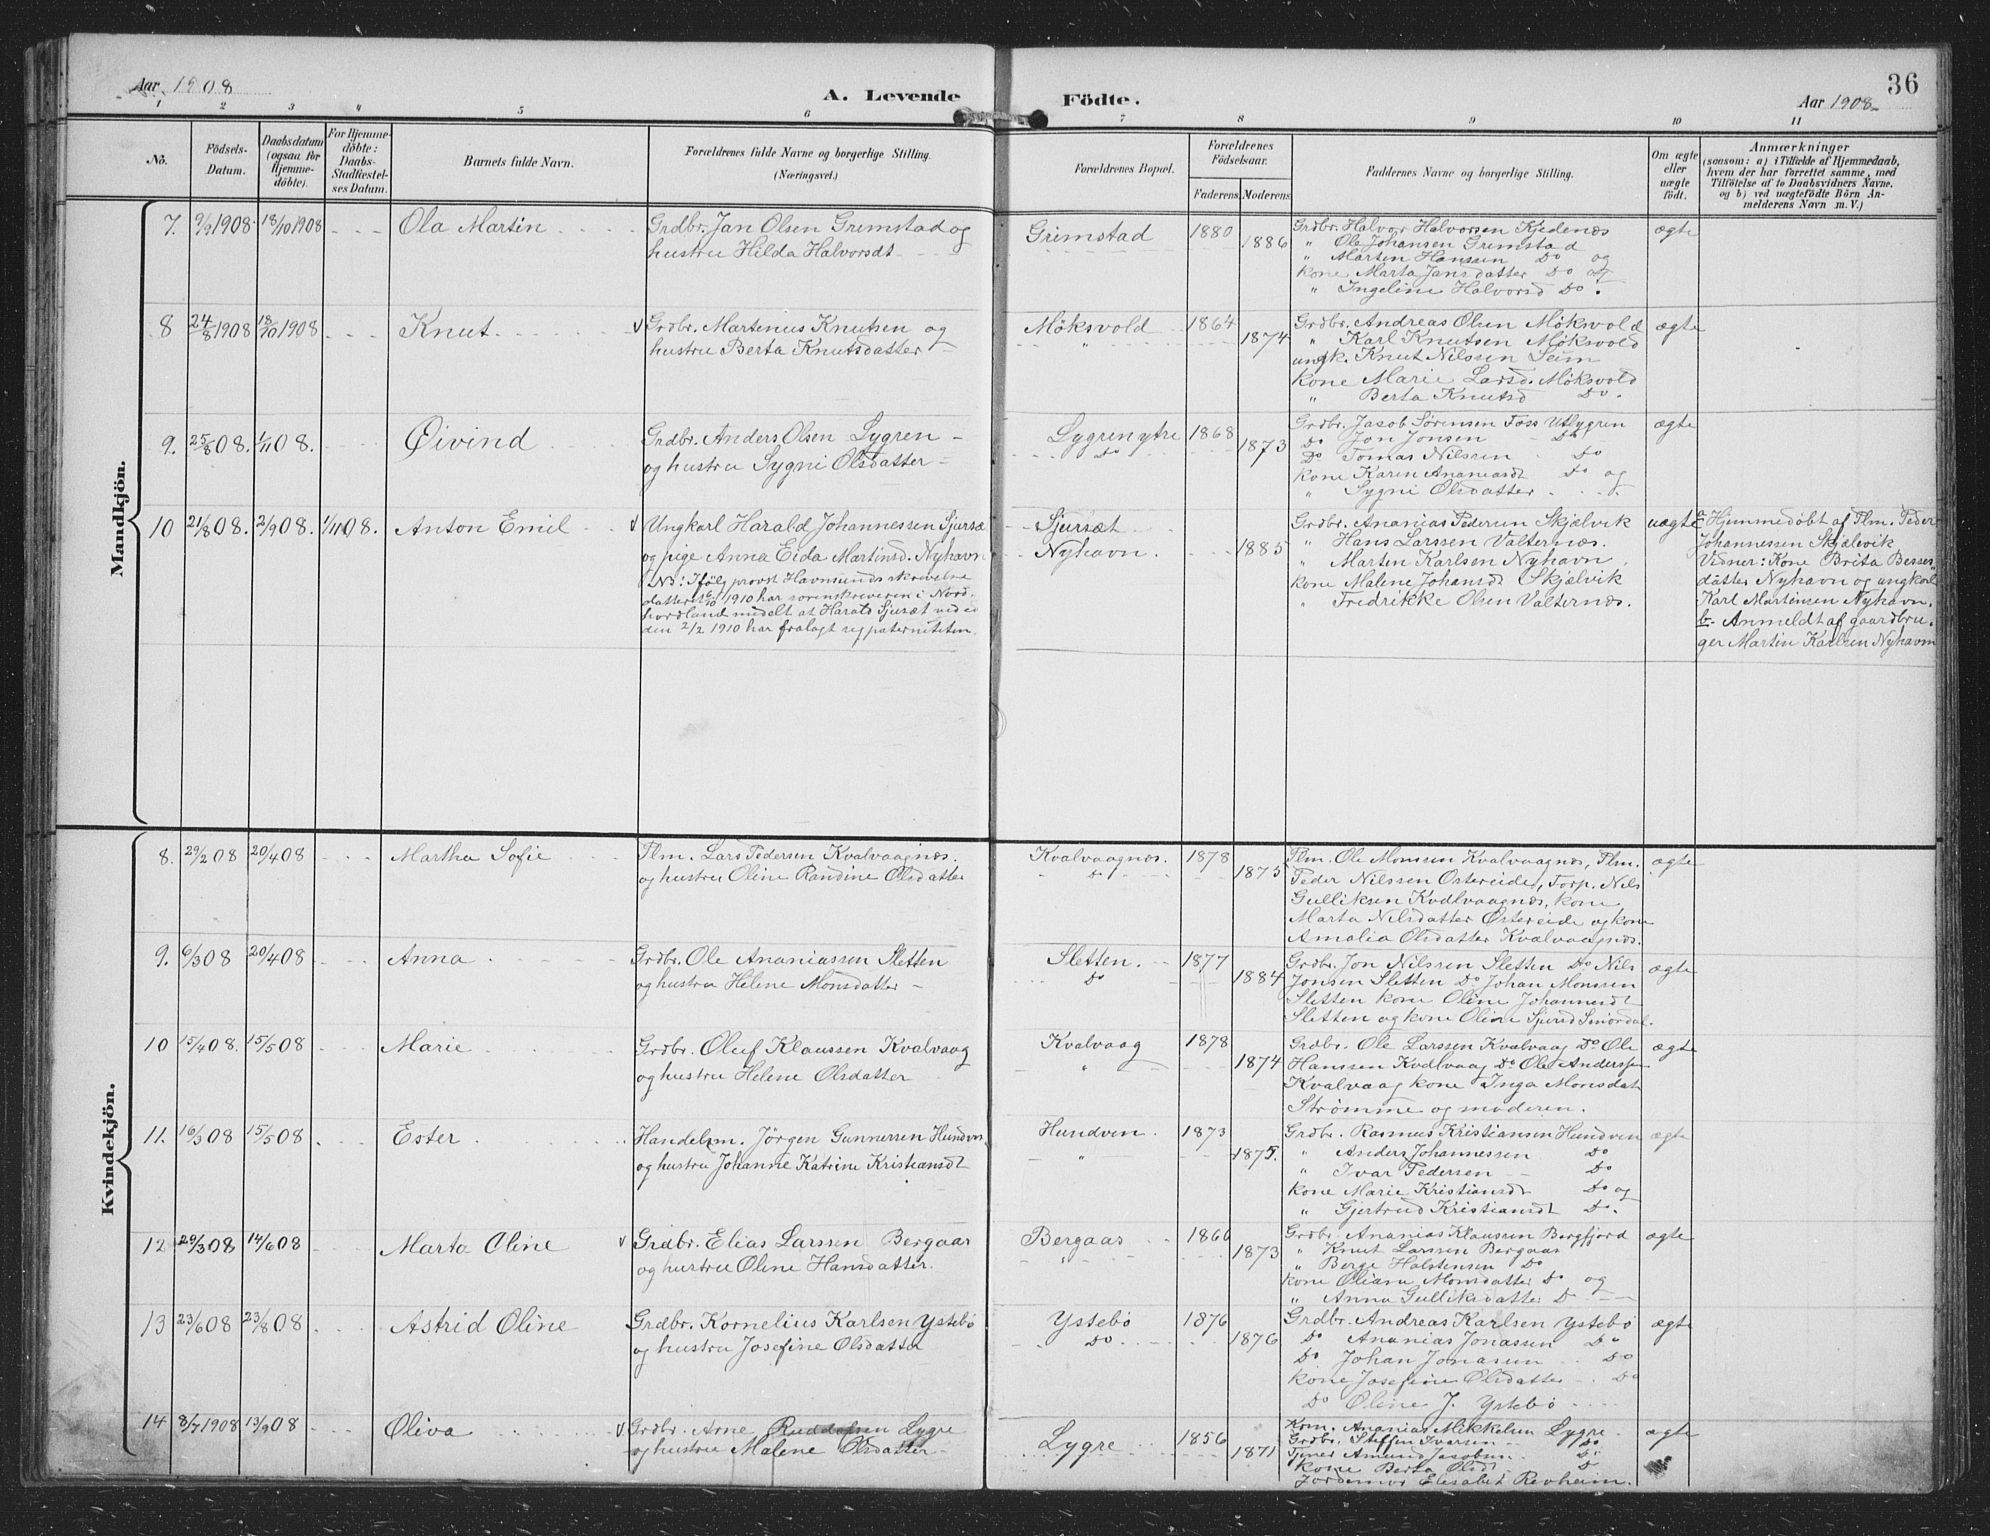 Aar 1908
A. Levende Födte.
Aar 1908
36
1 2 3 4 5 6 7 8 9 10 11
No.
Födsels-Datum.
Daabsdatum (ogsaa for Hjemme-döbte).
For Hjemme-döbte: Daabs-Stadfæstel-ses Datum.
Barnets fulde Navn.
Forældrenes fulde Navne og borgerlige Stilling.
(Næringsvei.)
Forældrenes Bopæl.
Forældrenes Födselsaar.
Faderens
Moderens
Faddernes Navne og borgerlige Stilling.
Om ægte eller uægte födt.
Anmærkninger
(saasom: a) i Tilfælde af Hjemmedaab,
hvem der har forrettet samme, med
Tilföielse af to Daabsvidners Navne,
og b) ved uægtefödte Börn An-
melderens Navn m. V.)
Mandkjön.
7. 9/9 1908. 18/10 1908 Ola Martin
Grdbr. Jan Olsen Grimstad og
hustru Hilda Halvorsdt.
Grimstad 1880 1886
Grdbr. Halvor Halvorsen Kjedenæs
" Ole Johansen Grimstad
" Marten Hanssen Do og
kone Marta Jansdatter Do og
" Ingeline Halvorsd Do.
ægte
8 24/8 1908 18/10 1908 Knut.
Grdbr. Martenus Knutsen og
hustru Berta Knutsdatter
Møksvold 1864 1874
Grdbr. Andreas Olsen Møksvold
" Karl Knutsen Møksvold
ungk. Knut Nilssen Seim
kone Marie Larsd. Møksvold
" Berta Knutsd Do.
ægte
9. 25/8 08. 1/11 08. Øivind
Grdbr. Anders Olsen Lygren
og hustru Sygni Olsdatter
Lygren ytre 1868 1873
Do
Grdbr. Jacob Sørensen Foss Utlygren
Do Jon Jonsen Do
Do Tomas Nilssen Do
kone Karen Ananiasdt Do og
" Sygni Olsdatter
ægte
10 21/8 08. 2/9 08. 1/11 08. Anton Emil
Ungkarl Harald Johannessen Sjursæ
og pige Anna Eida Martinsd. Nyhavn
Nb: Ifølg provst Havnsunds skrivelse
datteret 1910 har sorenskriveren i Nord
hordland medelt at Harald Sjursæt ved ed
den 2/2 1910 har fralagt sig paterniteten.
Sjursæt
Nyhavn. 1885
Grdbr. Ananias Pedersen Skjælvik
" Hans Larssen Valternæs.
" Marten Karlsen Nyhavn.
kone Malene Johansdt Skjælvik
" Fredrikke Olsen Valternæs.
uægte
a Hjemmedøbt af Flm. Peder
Johannessen Skjælvik
Vidner: Kone Brita Besses
datter Nyhavn og ungkarl
Karl Martinsen Nyhavn.
b. Anmeldt af gaardbru-
ger Martin Karlsen Nyhavn
Kvindekjön.
8. 29/2 08 20/4 08 Martha Sofie
Flm. Lars Pedersen Kvalvaagnæs.
og hustru Oline Randine Olsdatter
Kvalvaagnæs. 1878 1875
Do
Flm. Ole Monssen Kvalvaagnæs, Flm.
Peder Nilssen Østereide, Forp. Nils
Gulliksen Kvalvaagnæs, kone
Marta Nilsdatter Østereide og kone
Amalia Olsdatter Kvalvaagnæs.
ægte
9. 6/3 08 20/4 08 Anna
Grdbr. Ole Ananiassen Sletten
og hustru Helene Monsdatter
Sletten. 1877 1884
Do
Grdbr. Jon Nilssen Sletten Do Nils
Jonsen Sletten Do Johan Monssen
Sletten kone Oline Johannesdt
Sletten og kone Oline Sjursd Smørdal.
ægte
10 15/4 08. 15/5 08 Marie
Grdbr. Oluf Klaussen Kvalvaag
og hustru Helene Olsdatter
Kvalvaag 1878 1874
Grdbr. Ole Larssen Kvalvaag Do Ole
Hanssen Kvalvaag Do Ole Anderssen
Kvalvaag kone Inga Monsdat
Strømme og moderen.
ægte
11. 16/3 08 15/5 08 Ester
Handelsm. Jörgen Gunnersen Hundvn
og hustru Johanne Katrine Kristiansdt
Hundven. 1873 1875.
Grdbr. Rasmus Kristiansen Hundven
" Anders Johannessen Do
" Ivar Pedersen Do
kone Marie Kristiansdt Do og
" Gjertrud Kristiansdt Do.
ægte
12 29/3 08 14/6 08 Marta Oline
Grdbr. Elias Larssen Bergaas
og hustru Oline Hansdatter.
Bergaas 1866 1873
Grdbr. Ananias Klaussen Bergfjord
" Knut Larssen Bergaas
" Berge Halstensen Do
kone Oliana Monsdatter Do og
" Anna Gulliksdatter D
ægte
13 23/6 08 23/8 08 Astrid Oline
Grdbr. Kornelius Karlsen Ystebö
og hustru Josefine Olsdatter
Ystebö 1876 1876
Do
Grdbr. Andreas Karlsen Ystebö
Do Ananias Jonassen Do
Do Johan Jonassen Do
kone Josefine Olsdatter Do
Do Oline J. Ystebö
ægte
14 8/7 1908 13/9 08 Oliva
Grdbr. Arne Lygre
og hustru Malene Olsdatter
Lygre 1856 1871
Kom. Ananias Mikkelsen Lygre
Grdbr. Steffen Ivarsen Do
Tjener Amund Jacobsen Do
kone Berta Olsdt D
Jordemor Elesabet Revheim.
ægte